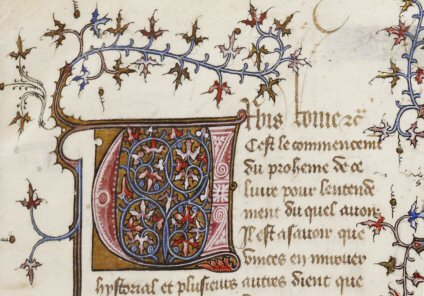 Cest le commencement
du proheme de ce
liure pour lentende
ment du quel auons
Il est asauoir que
vinces en mirouer
hystorial et plusieurs autres dient que